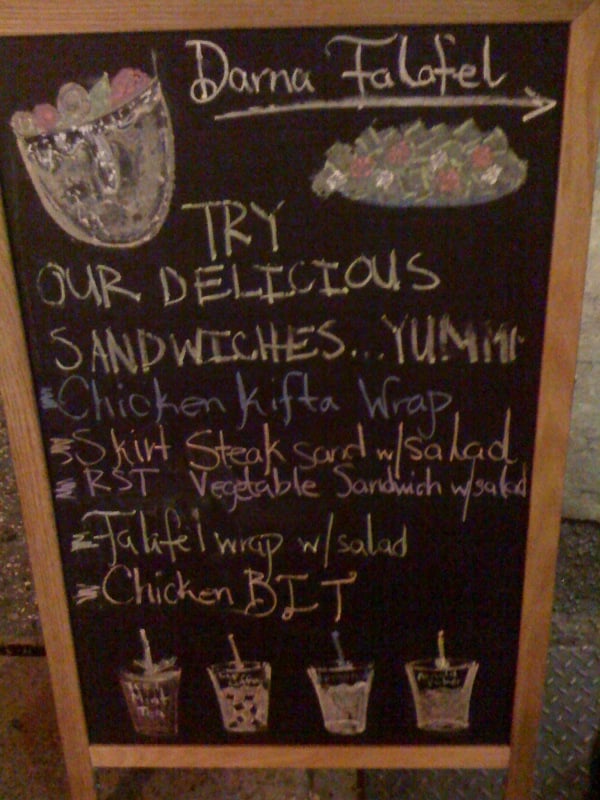 Darna Falafel
TRY
OUR DELICIOUS
SANDWICHES...YUMMI
Chicken Kifta Wrap
Skirt Steak sand w/salad
RST Vegetable Sandwich w/salad
Falafel wrap w/salad
Chicken BIT